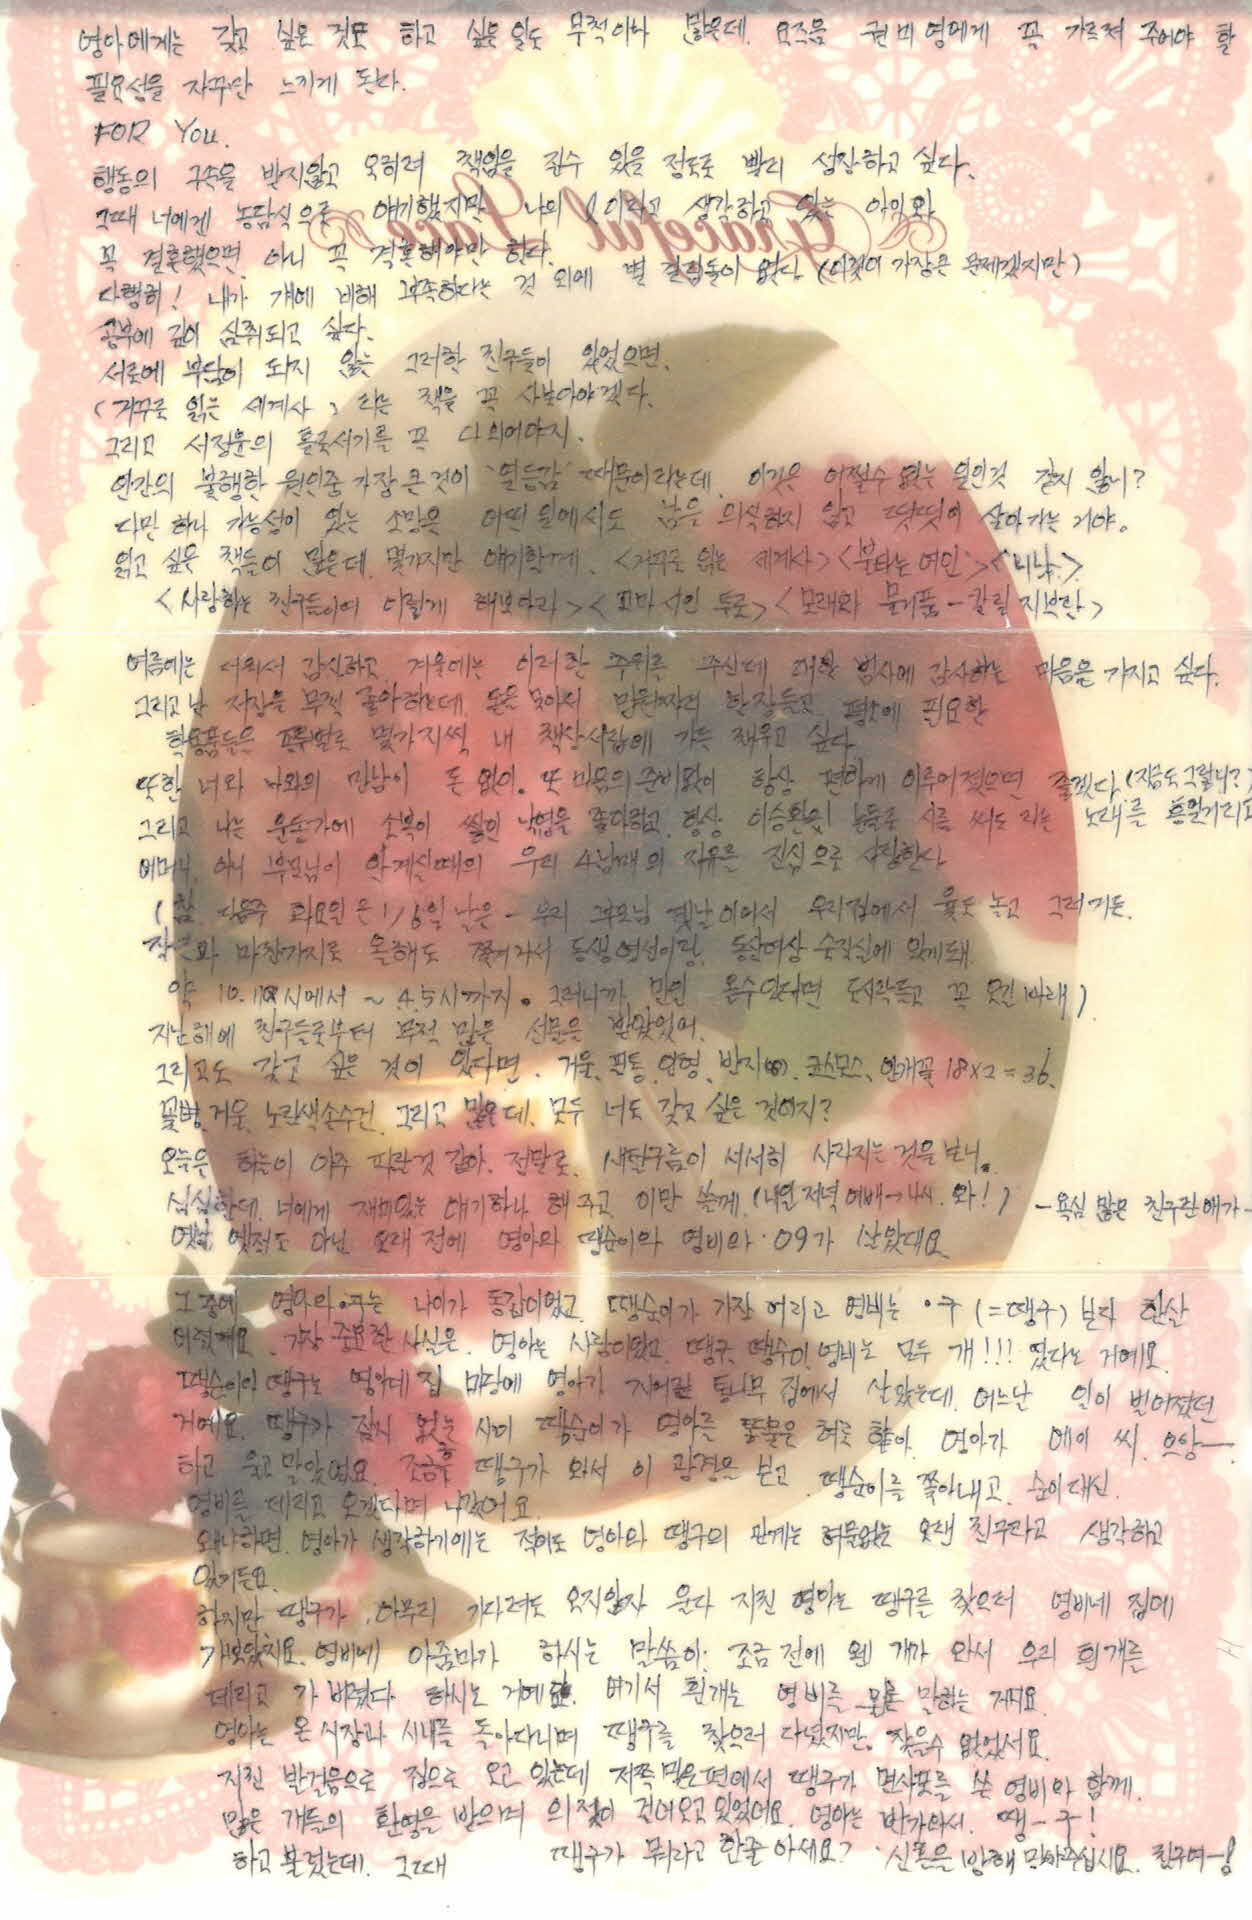 영아에게는 갖고 싶은 것도 하고 싶은 일도 무척이나 많은데. 요즈음 권비영에게 꼭 가르쳐 주어야 할
필요성을 자꾸만 느끼게 된다.
FOR You.
행동의 구속을 받지않고 오히려 책임을 질수 있을 정도로 빨리 성장하고 싶다.
그때 너에겐 농담식으로 얘기했지만 나의 이라고 생각하고 있는 아이와
Graceful Lace
꼭 결혼했으면. 아니 꼭 결혼해야만 한다.
다행히! 내가 걔에 비해 부족하다는 것 외에 별 걸림돌이 없다 (이것이 가장큰 문제겠지만)
공부에 깊이 심취되고 싶다.
서로에 부담이 되지 않는 그러한 친구들이 있었으면.
<거꾸로 읽는 세계사> 라는 책을 꼭 사보아야겠다.
그리고 서정윤의 홀로서기를 꼭 다 외어야지.
인간의 불행한 원인중 가장 큰것이 '열등감' 때문이라는데. 이것은 어쩔수 없는 일인것 같지 않니?
다만 하나 가능성이 있는 소망은 어떤 일에서도 남을 의식하지 않고 떳떳이 살아가는 거야.
읽고 싶은 책들이 많은데. 몇가지만 얘기할께. <거꾸로 읽는 세계사> <불타는 여인>
<사랑하는 친구들이여 이렇게 해보아라> <꼬마 시인 뚜로> <모래와 물거품 - 칼릴 지브란>
여름에는 더워서 감사하고. 겨울에는 이러한 추위를 주신데 대한 범사에 감사하는 마음을 가지고 싶다.
그리고 난 저장을 무척 좋아하는데. 돈을 모아서 만원짜리 한장들고 평소에 필요한
학용품들을 종류별로 몇가지씩 내 책상서랍에 가득 채우고 싶다
또한 너와 나와의 만남이 돈 없이. 또 마음의 준비없이 항상 편하게 이루어졌으면 좋겠다. (지금도 그렇니?)
그리고 나는 운동가에 소복이 쌓인 낙엽을 좋아하고. 항상 이승환의 눈물로 시를 써도 라는 노래를 흥얼거리고
어머니. 아니 부모님이 안계실때의 우리 4남매의 자유를 진심으로 사랑한다
(참. 다음주 화요일은 1/6일 날은 - 우리 부모님 옛날이어서 우리집에서 윷도 놀고 그러거든.
작년과 마찬가지로 올해도 쫓겨나서 동생 영선이랑. 동산여상 숙직실에 있게돼.
약 10.11시에서 ~ 4.5시까지. 그러니까 만일 올수있다면 도시락들고 꼭 오길 바래)
지난해에 친구들로부터 무척 많은 선물을 받았었어.
그리고도 갖고 싶은 것이 있다면. 거울. 필통. 인형. 반지. 코스모스. 안개꽃 18×2=36.
꽃병. 거울. 노란색손수건. 그리고 많은데. 모두 너도 갖고 싶은 것이지?
오늘은 하늘이 아주 파란것 같아. 전달로. 새털구름이 서서히 사라지는 것을 보니.
심심한데. 너에게 재미있는 얘기하나 해주고 이만 쓸께. (내일 저녁 예배→나서. 와!) - 욕심 많은 친구란 애가 -
옛날 옛적도 아닌 오래 전에 영아와 땡순이와 영비와 ·09가 살았대요
그 중에 영아와 ·구는 나이가 동갑이었고. 땡순이가 가장 어리고 영비는 ·구 (=땡구) 보다 한살
어렸대요. 가장 중요한 사실은. 영아는 사람이었고. 땡구. 땡순이. 영비는 모두 개!!! 였다는 거예요.
땡순이와 땡구는 영아네 집 마당에 영아가 지어준 통나무 집에서 살았는데. 어느날 일이 벌어졌던
거예요. 땡구가 잠시 없는 사이 땡순이가 영아를 똥물은 혀로 핥아. 영아가 에이 씨. 으앙—
하고 울고 말았어요. 조금후 땡구가 와서 이 광경을 보고. 땡순이를 쫓아내고. 순이 대신.
영비를 데리고 오겠다며 나갔어요.
왜냐하면. 영아가 생각하기에는 적어도 영아와 땡구의 관계는 허물없는 오랜 친구라고 생각하고
있거든요.
하지만 땡구가 아무리 기다려도 오지않자 울다 지친 영아는 땡구를 찾으러 영비네 집에
가보았지요. 영비네 아줌마가 하시는 말씀이. 조금 전에 웬 개가 와서 우리 흰개를
데리고 가 버렸다 하시는 거예요. 여기서 흰개는 영비를 말하는 거지요
영아는 온 시장과 시내를 돌아다니며 땡구를 찾으러 다녔지만. 찾을수 없었어요.
지친 발걸음으로 집으로 오고 있는데 저쪽 맞은편에서 땡구가 면사포를 쓴 영비와 함께.
많은 개들의 환영을 받으며 의젓이 걸어오고 있었어요. 영아는 반가와서. 땡 - 구!
하고 불렀는데. 그때 땡구가 뭐라고 한줄 아세요? 신혼을 방해 말아주십시요. 친구여—!